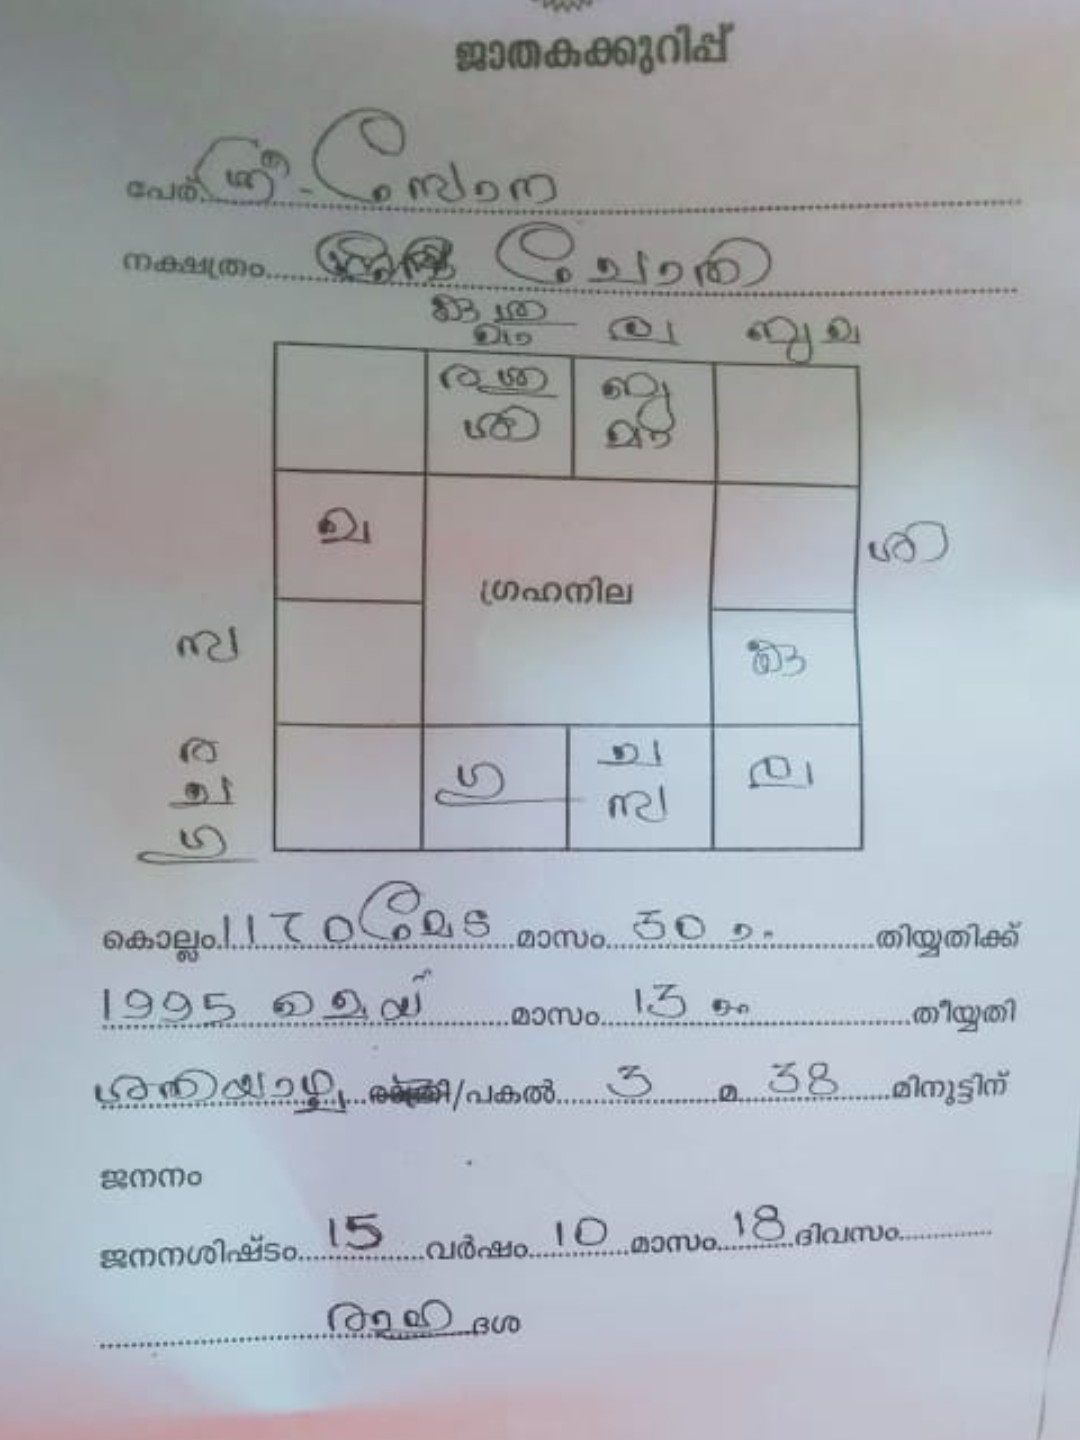 ജാതകക്കുറിപ്പ്
പേര് ശ്രീ. സോന
നക്ഷത്രം ചോതി
കു ശു മാ
ല
ബു ച
ര ശു ശി
ബു മാ
ച
ഗ്രഹനില
ശി
സ
കു
ര ച ഗു
ഗു
ച സ
ല
കൊല്ലം 1170 മേട മാസം 30 ാം തിയ്യതിക്ക്
1995 മെയ് മാസം 13 ാം തീയ്യതി
ശനിയാഴ്ച /പകൽ 3 മ 38 മിനുട്ടിന്
ജനനം
ജനനശിഷ്ടം 15 വർഷം 10 മാസം 18 ദിവസം
രാഹു ദശ